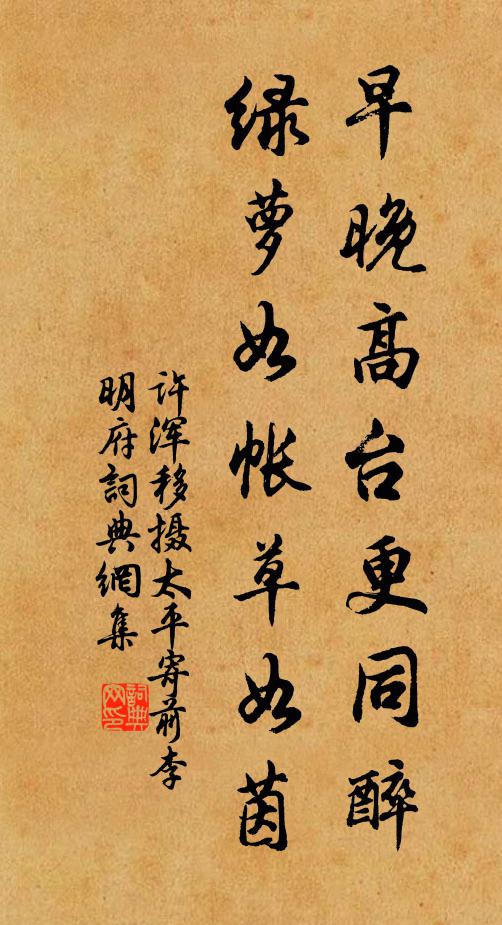 早晚高台更同醉
绿萝如帐草如茵
许浑移摄太平寄前李
明府詞典網集
詞典
网印